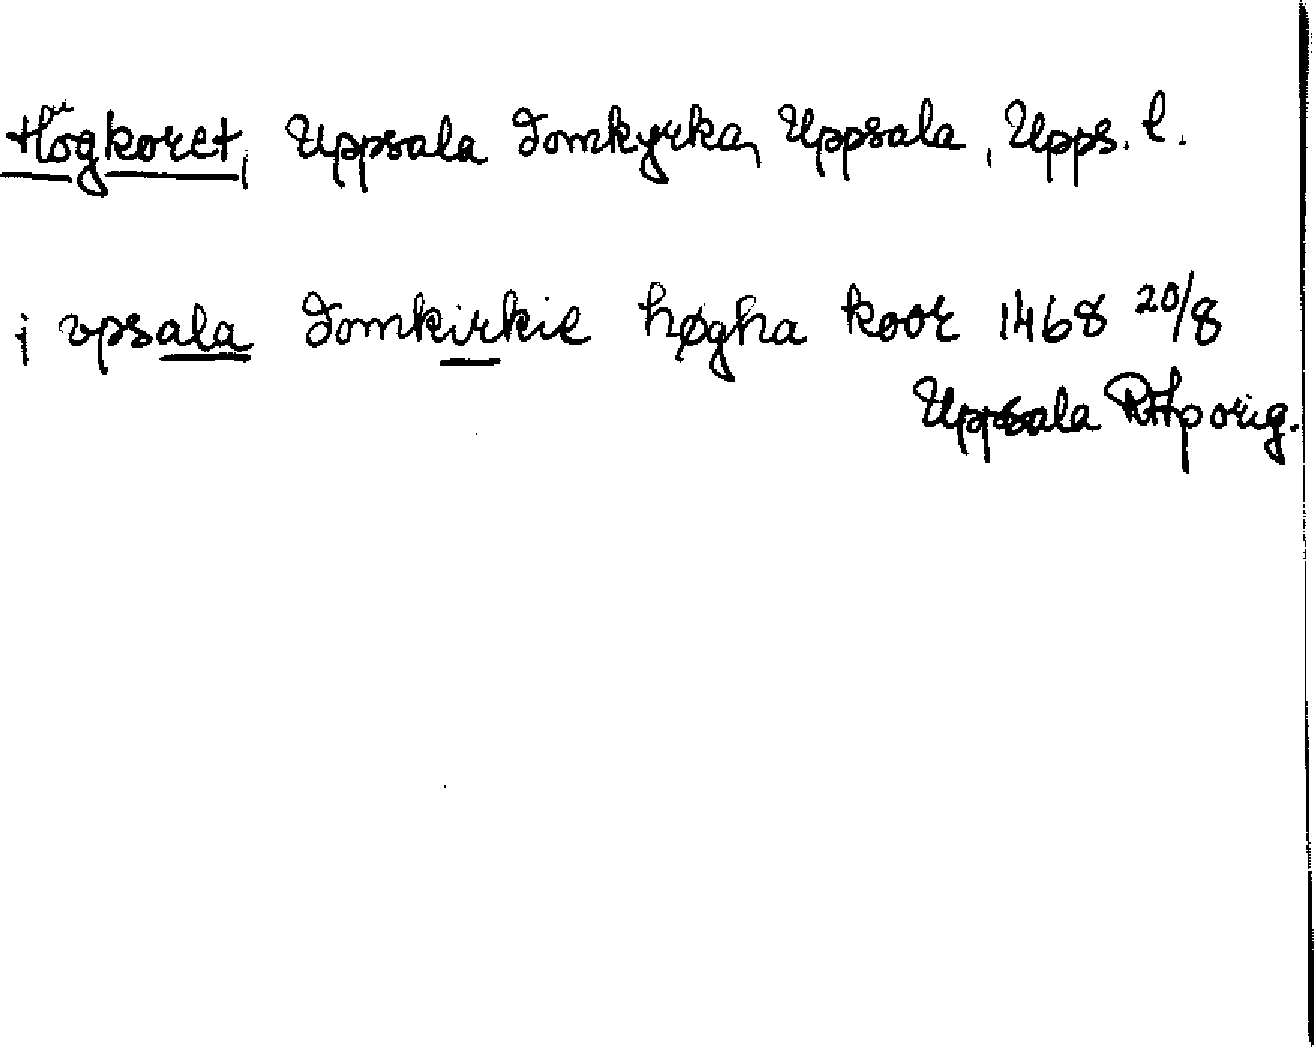 Högkoret, Uppsala domkyrka, Uppsala, Upps. l.
j vpsala domkirkie høgha koor 1468 20/8
Uppsala RAp orig.